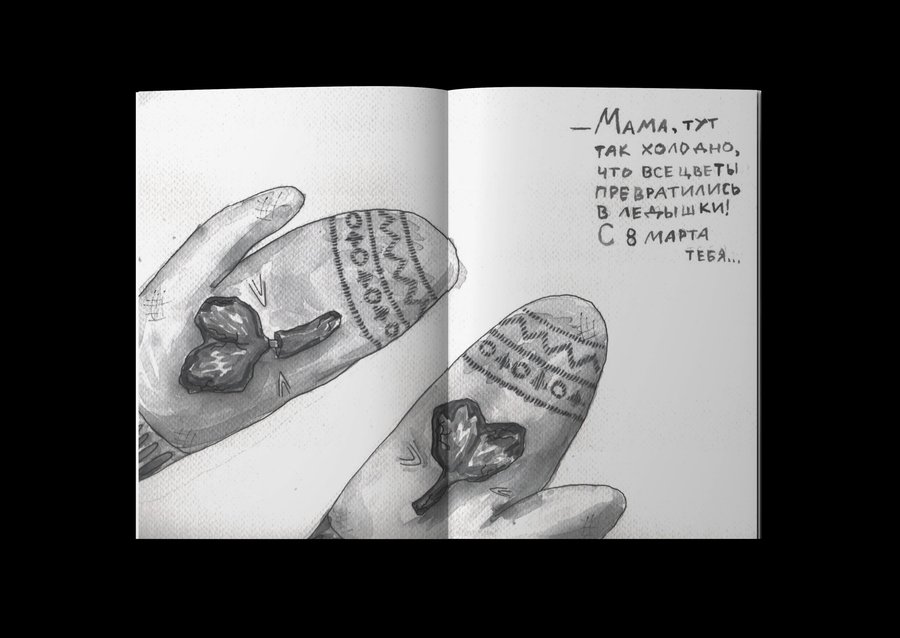 — Мама, тут
так холодно,
что все цветы
превратились
в ледышки!
С 8 марта
тебя...